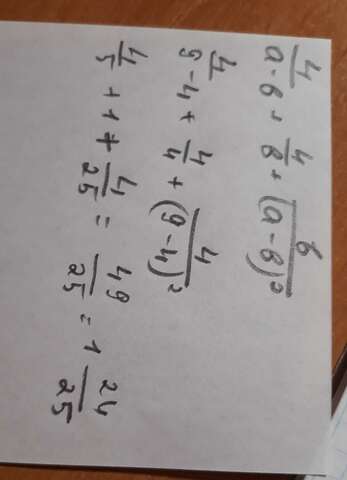 4/(a-в) + 4/в + в/(a-в)²
4/(9-4) + 4/4 + 4/(9-4)²
4/5 + 1 + 4/25 = 49/25 = 1 24/25